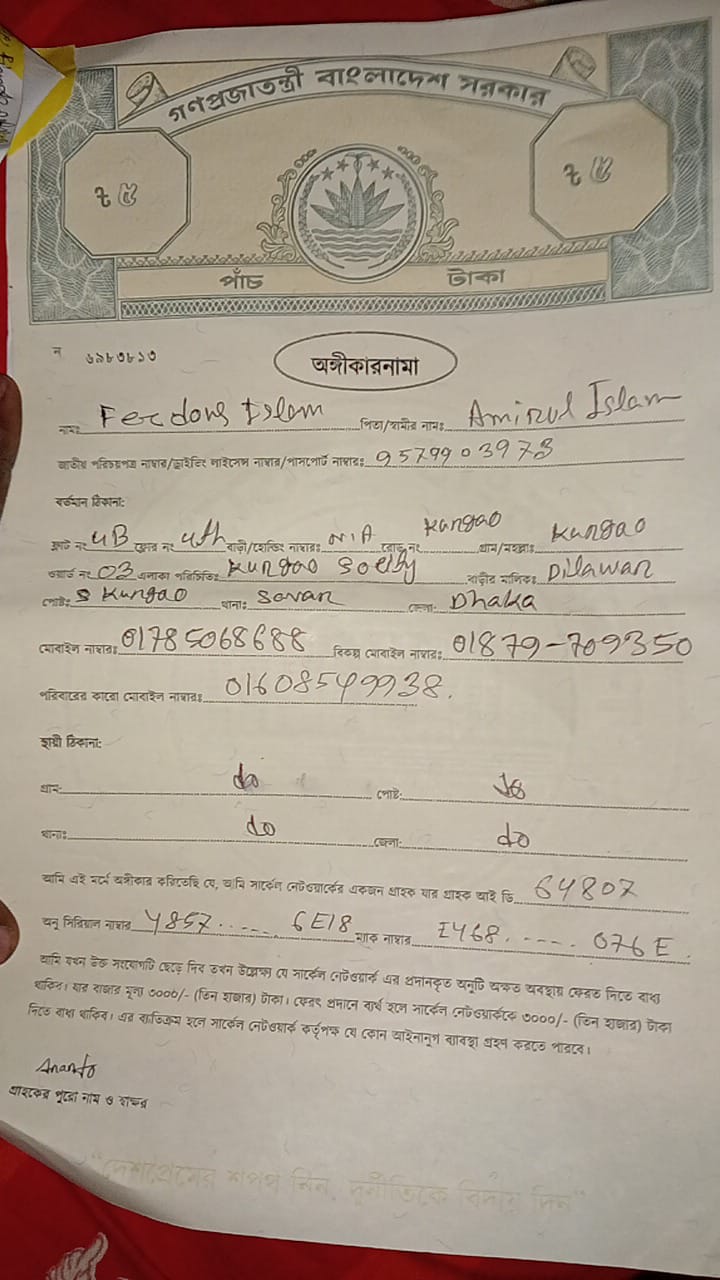 গণপ্রজাতন্ত্রী বাংলাদেশ সরকার
৳ ৫ ৳ ৫
পাঁচ টাকা
ন ৬৯৮৩৮১৩
অঙ্গীকারনামা
নাম: Ferdous Islam পিতা/স্বামীর নাম: Amirul Islam
জাতীয় পরিচয়পত্র নাম্বার/ড্রাইভিং লাইসেন্স নাম্বার/পাসপোর্ট নাম্বারঃ 9579903973
বর্তমান ঠিকানা:
ফ্লাট নং 4B ফ্লোর নং 4th বাড়ী/হোল্ডিং নাম্বারঃ N/A রোড নং Kungao গ্রাম/মহল্লাঃ Kungao
ওয়ার্ড নং 03 এলাকা পরিচিতিঃ Kungao বাড়ীর মালিকঃ Dillawar
পোষ্টঃ S Kungao থানাঃ Savar জেলাঃ Dhaka
মোবাইল নাম্বারঃ 01785068688 বিকল্প মোবাইল নাম্বারঃ 01879-709350
পরিবারের কারো মোবাইল নাম্বারঃ 01608549938.
স্থায়ী ঠিকানা:
গ্রাম: do পোষ্ট: do
থানাঃ do জেলা: do
আমি এই মর্মে অঙ্গীকার করিতেছি যে, আমি সার্কেল নেটওয়ার্কের একজন গ্রাহক যার গ্রাহক আই ডি 64807
অনু সিরিয়াল নাম্বার 4857...... 6E18 ম্যাক নাম্বার I468...... 076E.
আমি যখন উক্ত সংযোগটি ছেড়ে দিব তখন উল্লেক্ষ্য যে সার্কেল নেটওয়ার্ক এর প্রদানকৃত অনুটি অক্ষত অবস্থায় ফেরত দিতে বাধ্য
থাকিব। যার বাজার মূল্য ৩০০০/- (তিন হাজার) টাকা। ফেরৎ প্রদানে ব্যর্থ হলে সার্কেল নেটওয়ার্ককে ৩০০০/- (তিন হাজার) টাকা
দিতে বাধ্য থাকিব। এর ব্যতিক্রম হলে সার্কেল নেটওয়ার্ক কর্তৃপক্ষ যে কোন আইনানুগ ব্যাবস্থা গ্রহণ করতে পারবে।
Ananto
গ্রাহকের পুরো নাম ও স্বাক্ষর
"দেশপ্রেমের শপথ নিন, দূর্নীতিকে বিদায় দিন"